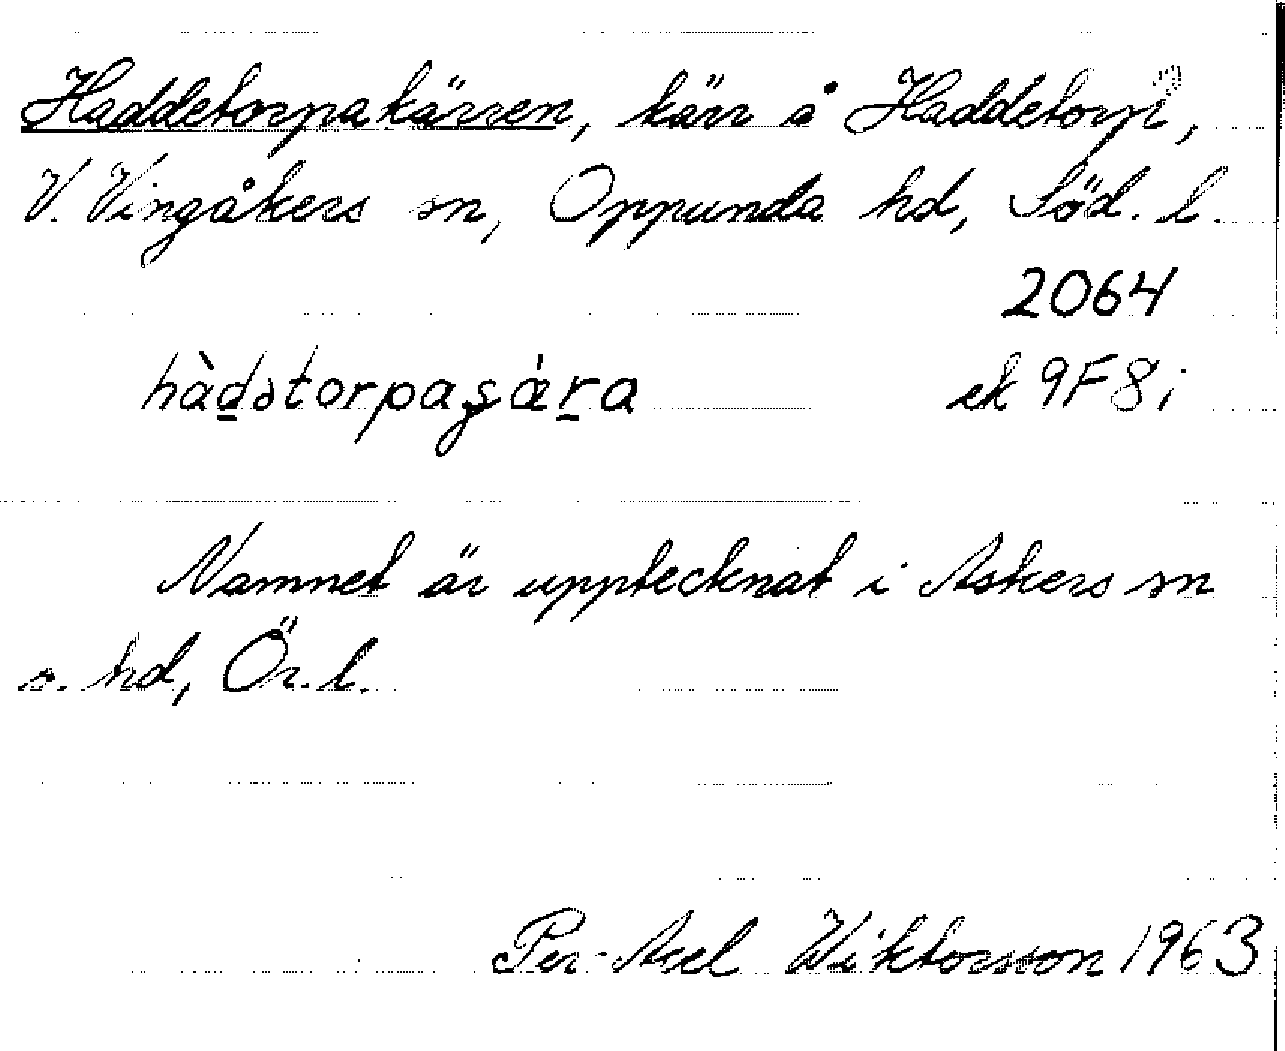 Haddetorpakärren, kärr å Haddetorp,
V. Vingåkers sn, Oppunda hd, Söd. l.
2064
hàdətorpaʂæ̀ra ek 9F8i
Namnet är upptecknat i Askers sn
o. hd, Ör. l.
Per-Axel Wiktorsson 1963